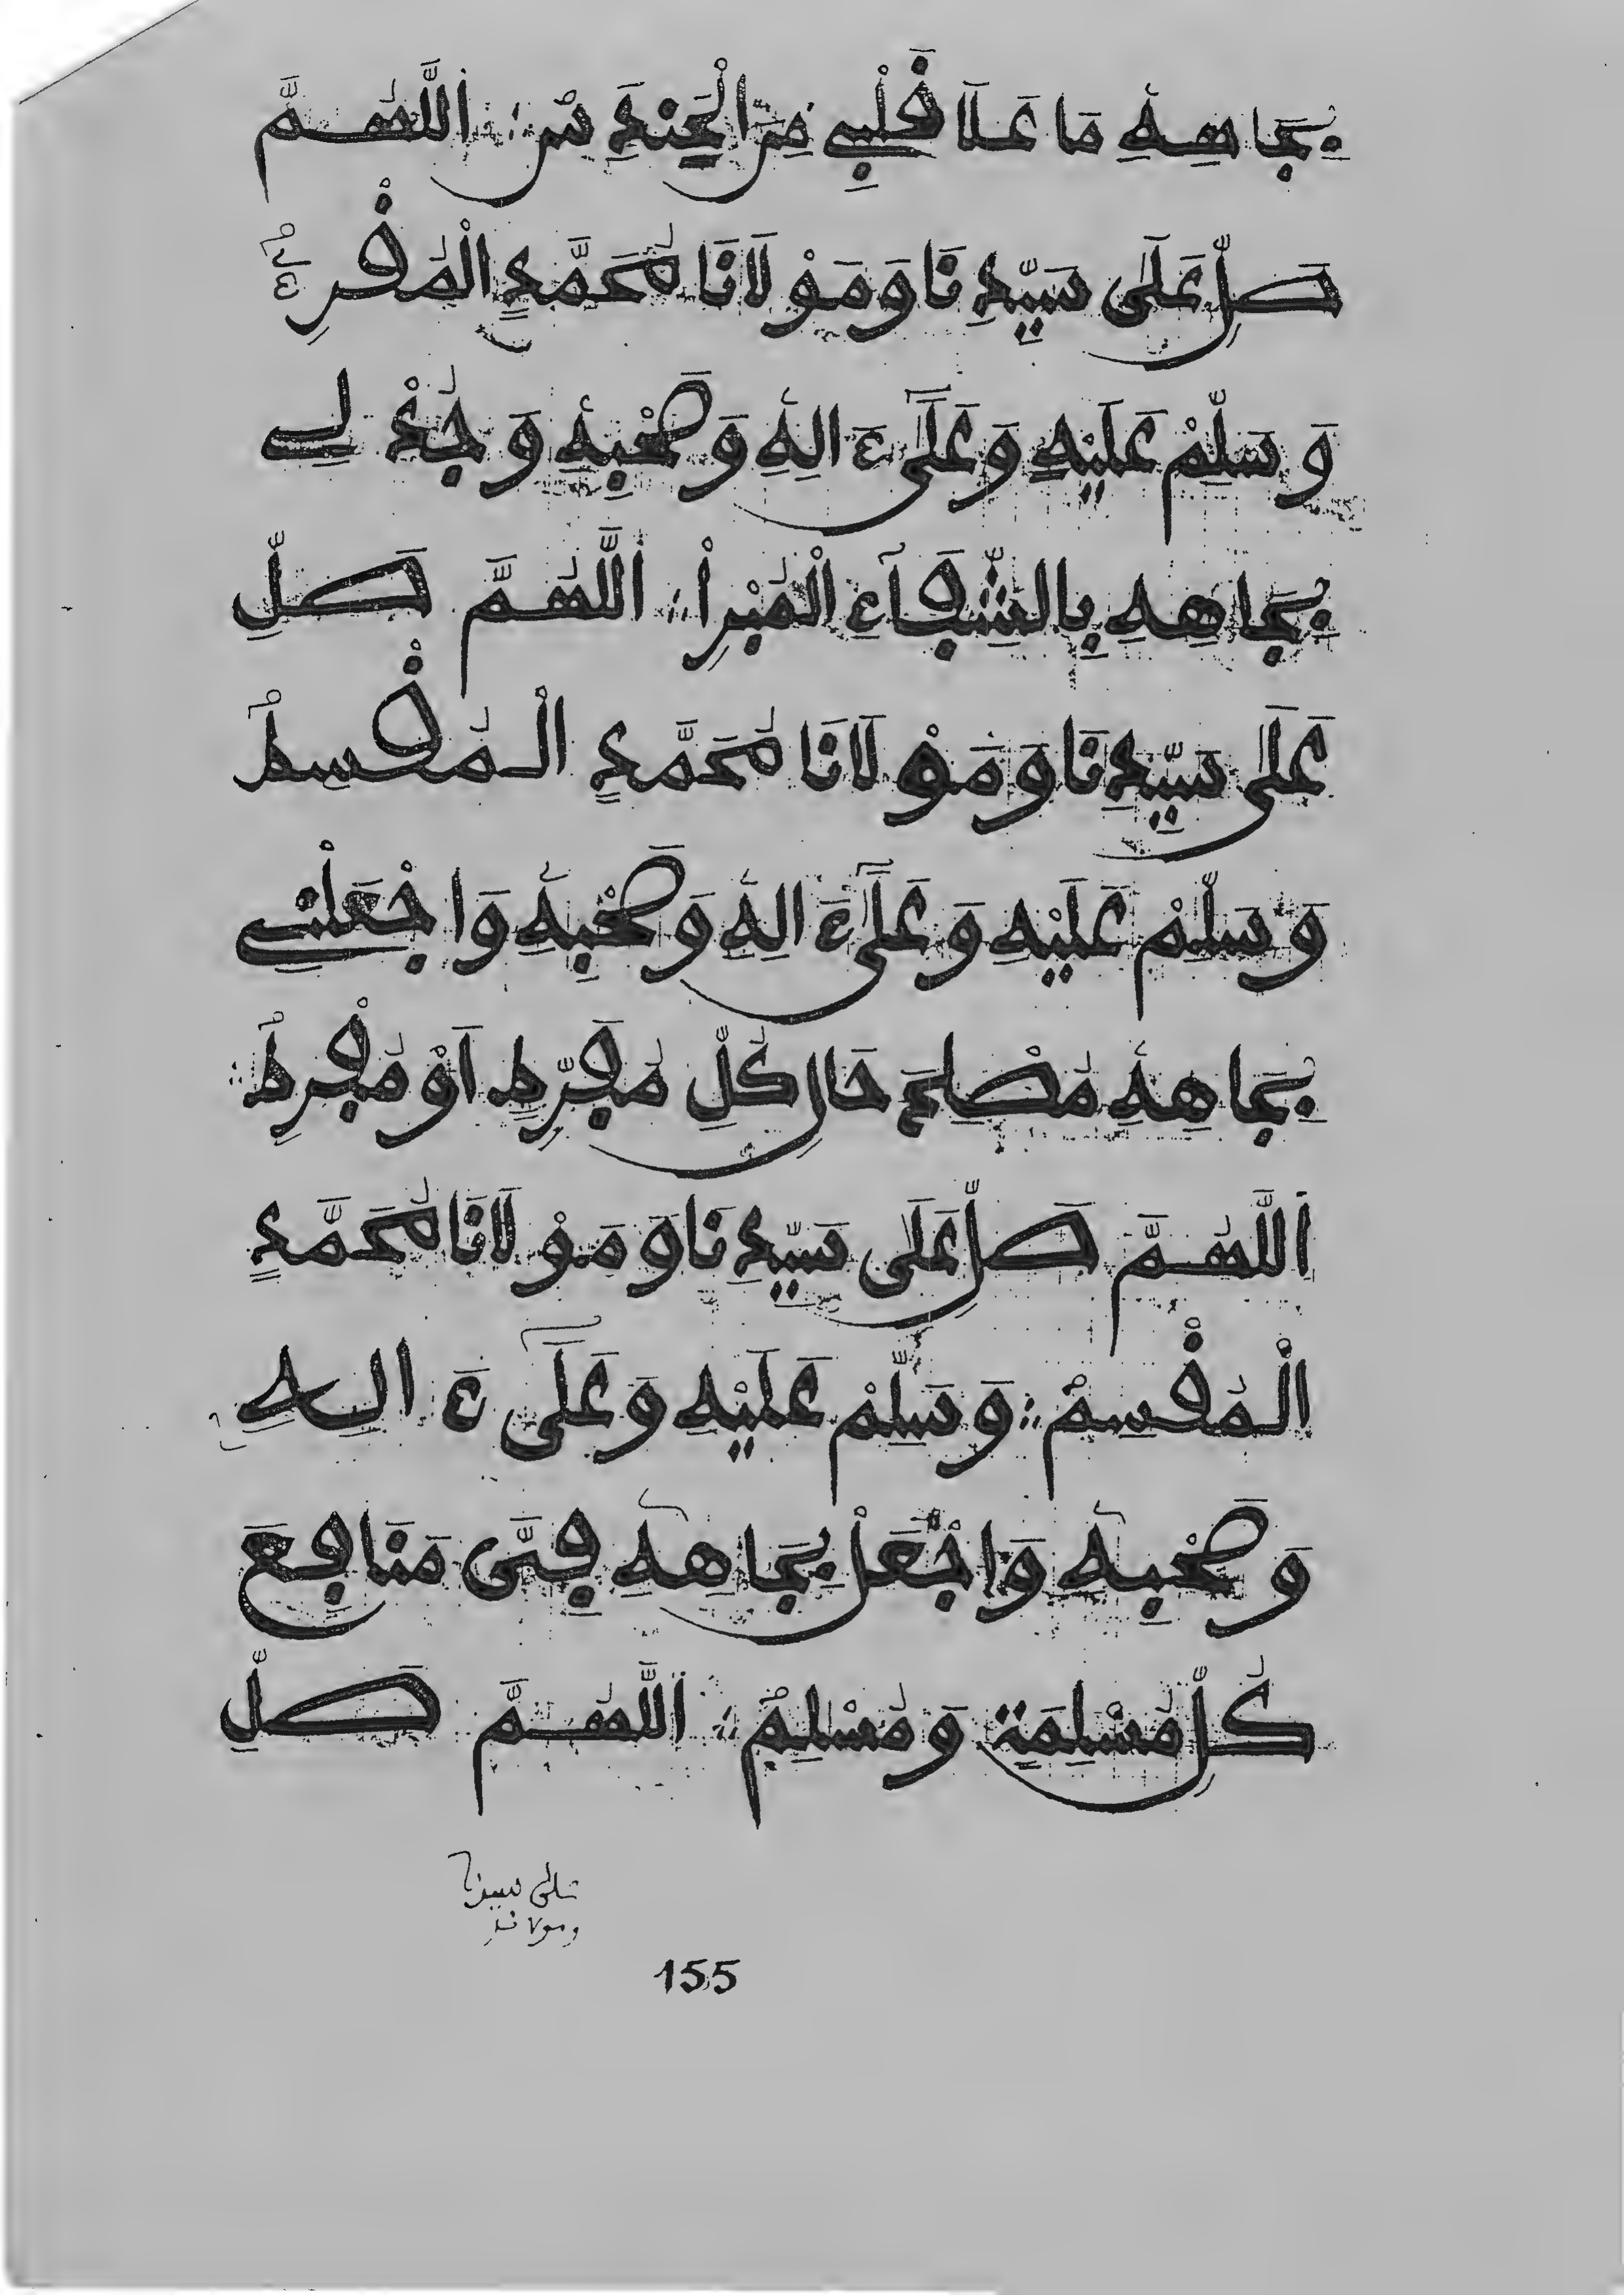 بِجَاهِهِ مَا عَلَا فَلْبِي مِنَ الْحِندِسْ اَللَّهُمَّ
صَلِّ عَلَى سَيِّدِنَا وَمَوْلَانَا مُحَمَّدٍ الْمُقْرِءُ
وَسَلِّمْ عَلَيْهِ وَعَلَى ءَالِهِ وَصَحْبِهِ وَجُدْ لِي
بِجَاهِهِ بِالشِّفَآءِ الْمُبْرِأْ اَللَّهُمَّ صَلِّ
عَلَى سَيِّدِنَا وَمَوْلَانَا مُحَمَّدٍ الْمُقْسِطُ
وَسَلِّمْ عَلَيْهِ وَعَلَى ءَالِهِ وَصَحْبِهِ وَاجْعَلْنِي
بِجَاهِهِ مُصْلِحَ حَالِ كُلِّ مُفَرِّطٍ اَوْ مُفْرِطُ
اَللَّهُمَّ صَلِّ عَلَى سَيِّدِنَا وَمَوْلَانَا مُحَمَّدٍ
الْمُقْسِمْ وَسَلِّمْ عَلَيْهِ وَعَلَى ءَالِهِ
وَصَحْبِهِ وَاجْعَلْ بِجَاهِهِ فِيَّ مَنَافِعَ
كُلِّ مُسْلِمَةٍ وَمُسْلِمْ اَللَّهُمَّ صَلِّ
على سيدنا
ومولانا
155